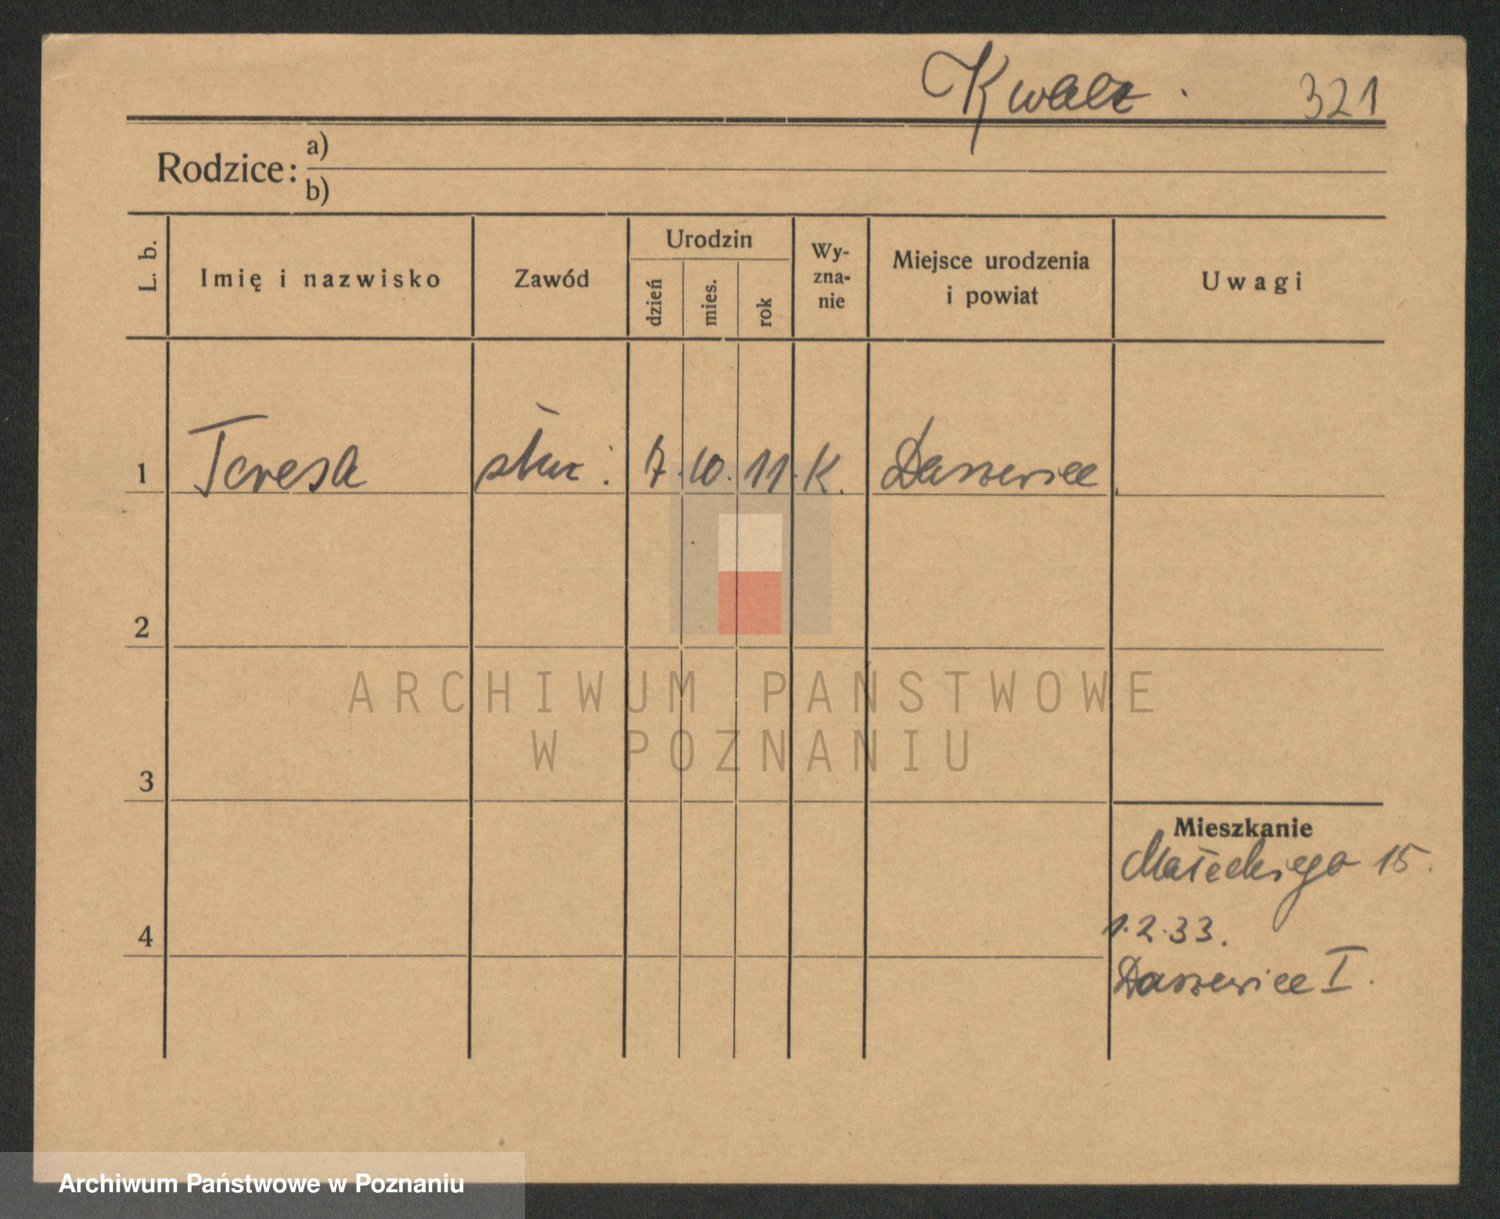 Kwalz. 321
Rodzice: a)
b)
L. b. Imię i nazwisko Zawód Urodzin dzień mies. rok Wy-zna-nie Miejsce urodzenia i powiat Uwagi
1 Teresa służ. 7. 10. 11. K. Daszewice
2
ARCHIWUM PAŃSTWOWE
W POZNANIU
3
Mieszkanie
Małeckiego 15.
1.2.33.
4
Daszewice I.
Archiwum Państwowe w Poznaniu